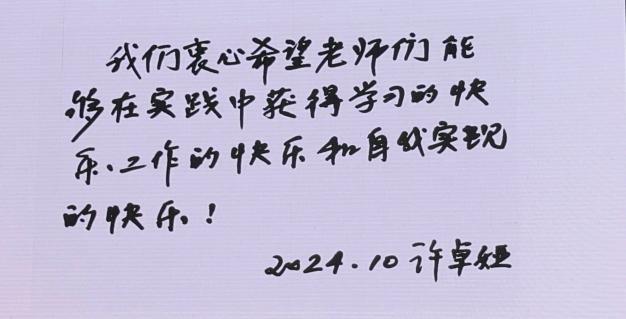 我们衷心希望老师们能
够在实践中获得学习的快
乐、工作的快乐和自我实现
的快乐！
2024.10 许卓娅